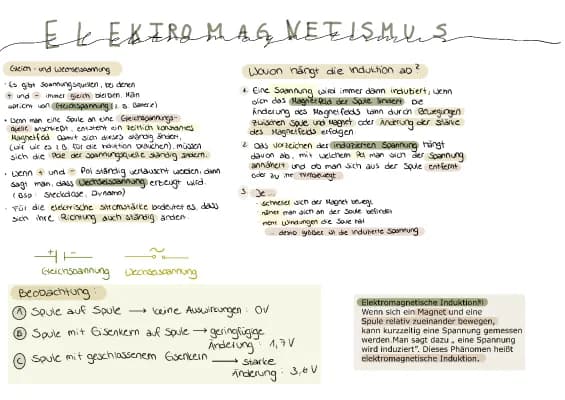 ELEKTROMAGNETISMUS
Gleich- und Wechselspannung
· Es gibt Spannungsquellen, bei denen
+ und - immer gleich bleiben. Man
spricht von Gleichspannung (z. B. Batterie)
· Wenn man eine Spule an eine Gleichspannungs-
quelle anschließt, entsteht ein zeitlich konstantes
Magnetfeld. Damit sich dieses ständig ändert,
(wie wir es z. B. für die Induktion brauchen), müssen
sich die Pole der Spannungsquelle ständig ändern.
· Wenn + und - Pol ständig vertauscht werden, dann
sagt man, dass Wechselspannung erzeugt wird.
(Bsp: Steckdose, Dynamo)
· Für die elektrische Stromstärke bedeutet es, dass
sich ihre Richtung auch ständig ändert.
+ -
~
Gleichspannung Wechselspannung
Wovon hängt die Induktion ab?
1. Eine Spannung wird immer dann induziert, wenn
sich das Magnetfeld der Spule ändert. Die
Änderung des Magnetfelds kann durch Bewegungen
zwischen Spule und Magnet oder Änderung der Stärke
des Magnetfelds erfolgen
2. Das Vorzeichen der induzierten Spannung hängt
davon ab, mit welchem Pol man sich der Spannung
annähert und ob man sich aus der Spule entfernt
oder zu ihr hinbewegt
3. Je...
· schneller sich der Magnet bewegt,
näher man sich an der Spule befindet
mehr Windungen die Spule hat
... desto größer ist die induzierte Spannung
Beobachtung:
A Spule auf Spule → keine Auswirkungen: 0V
B Spule mit Eisenkern auf Spule → geringfügige
Änderung: 1,7 V
C Spule mit geschlossenem Eisenkern → starke
Änderung: 3,6 V
Elektromagnetische Induktion
Wenn sich ein Magnet und eine
Spule relativ zueinander bewegen,
kann kurzzeilig eine Spannung gemessen
werden.Man sagt dazu „ eine Spannung
wird induziert". Dieses Phänomen heißt
elektromagnetische Induktion.